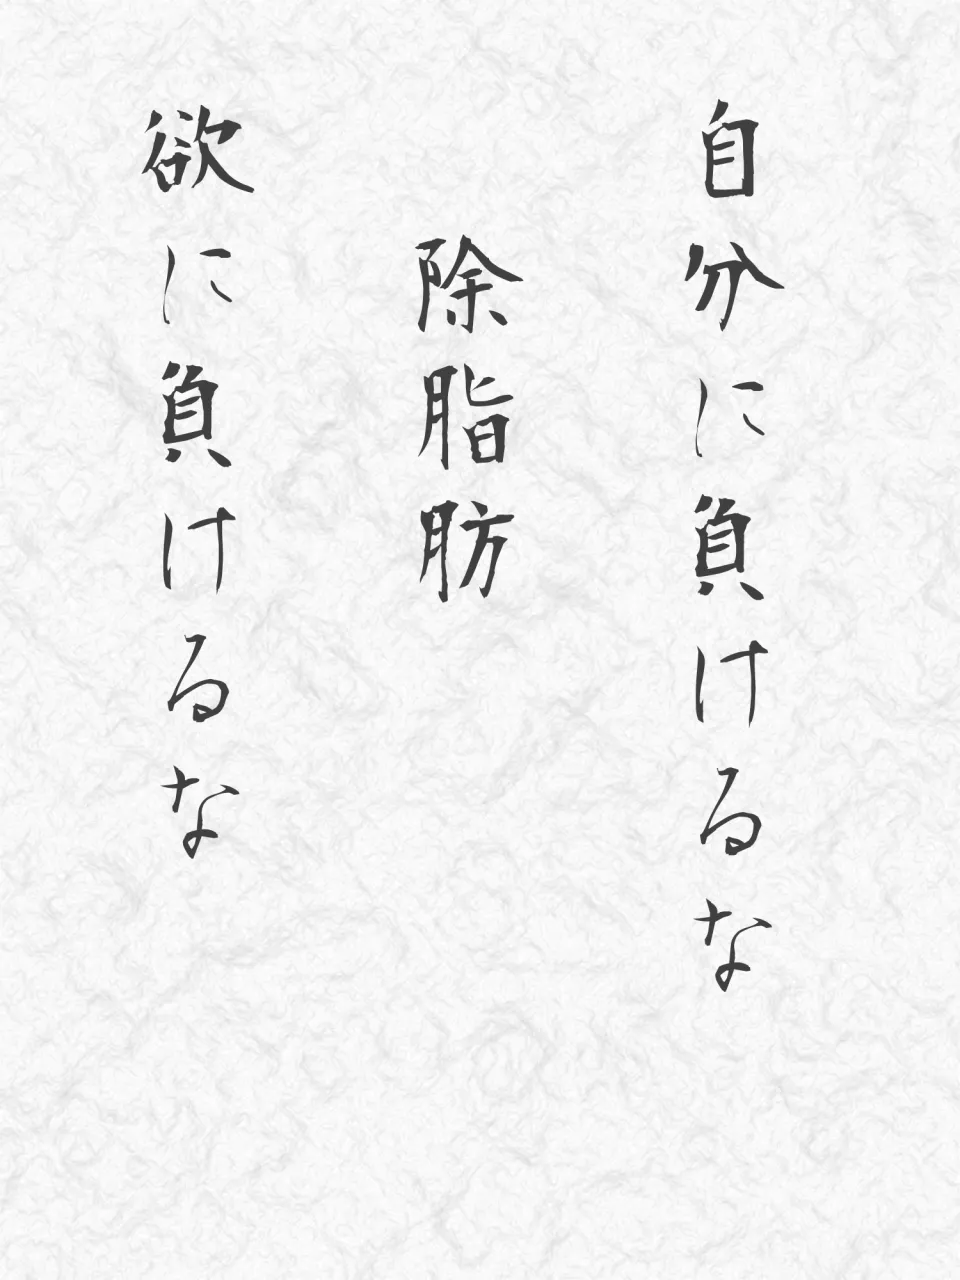 自分に負けるな
除脂肪
欲に負けるな